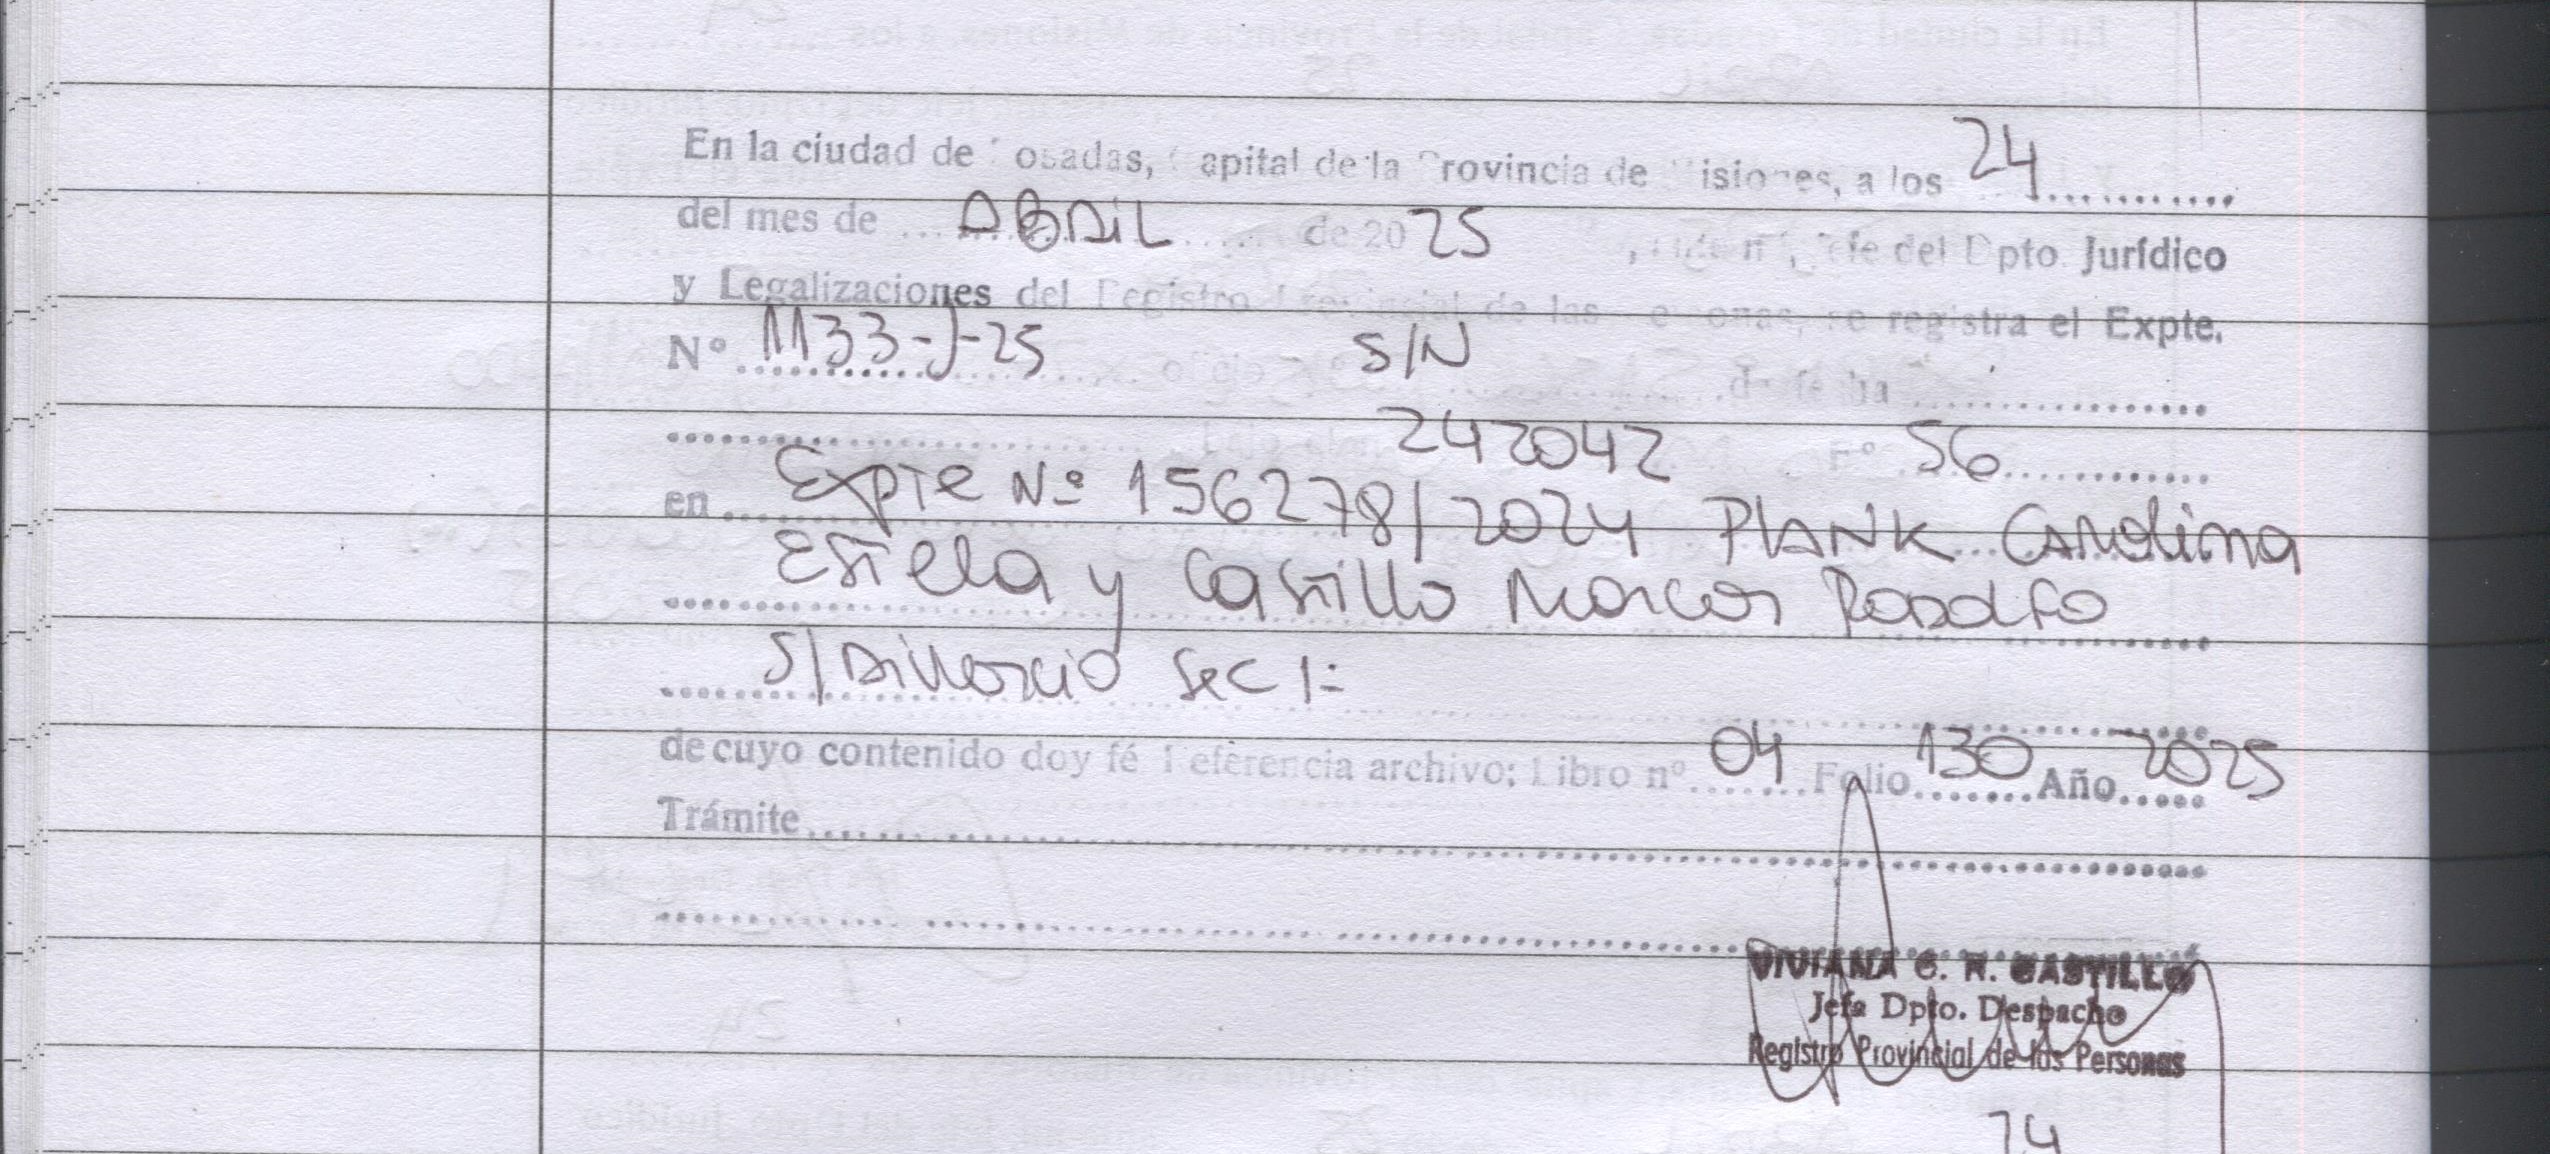 En la ciudad de Posadas, Capital de la Provincia de Misiones, a los 24
del mes de ABRIL de 2025, Jefe del Dpto. Jurídico
y Legalizaciones del Registro Provincial de las Personas, se registra el Expte.
Nº 1133-J-25 S/N de fecha
242042 Fº 56
en Expte Nº 156278/2024 PLANK Carolina
Estela y Castillo Marcos Rodolfo
S/Divorcio Sec 1=
de cuyo contenido doy fé Referencia archivo: Libro nº 04 Folio 130 Año 2025
Trámite
VIVIANA C. R. CASTILLO
Jefa Dpto. Despacho
Registro Provincial de las Personas
24